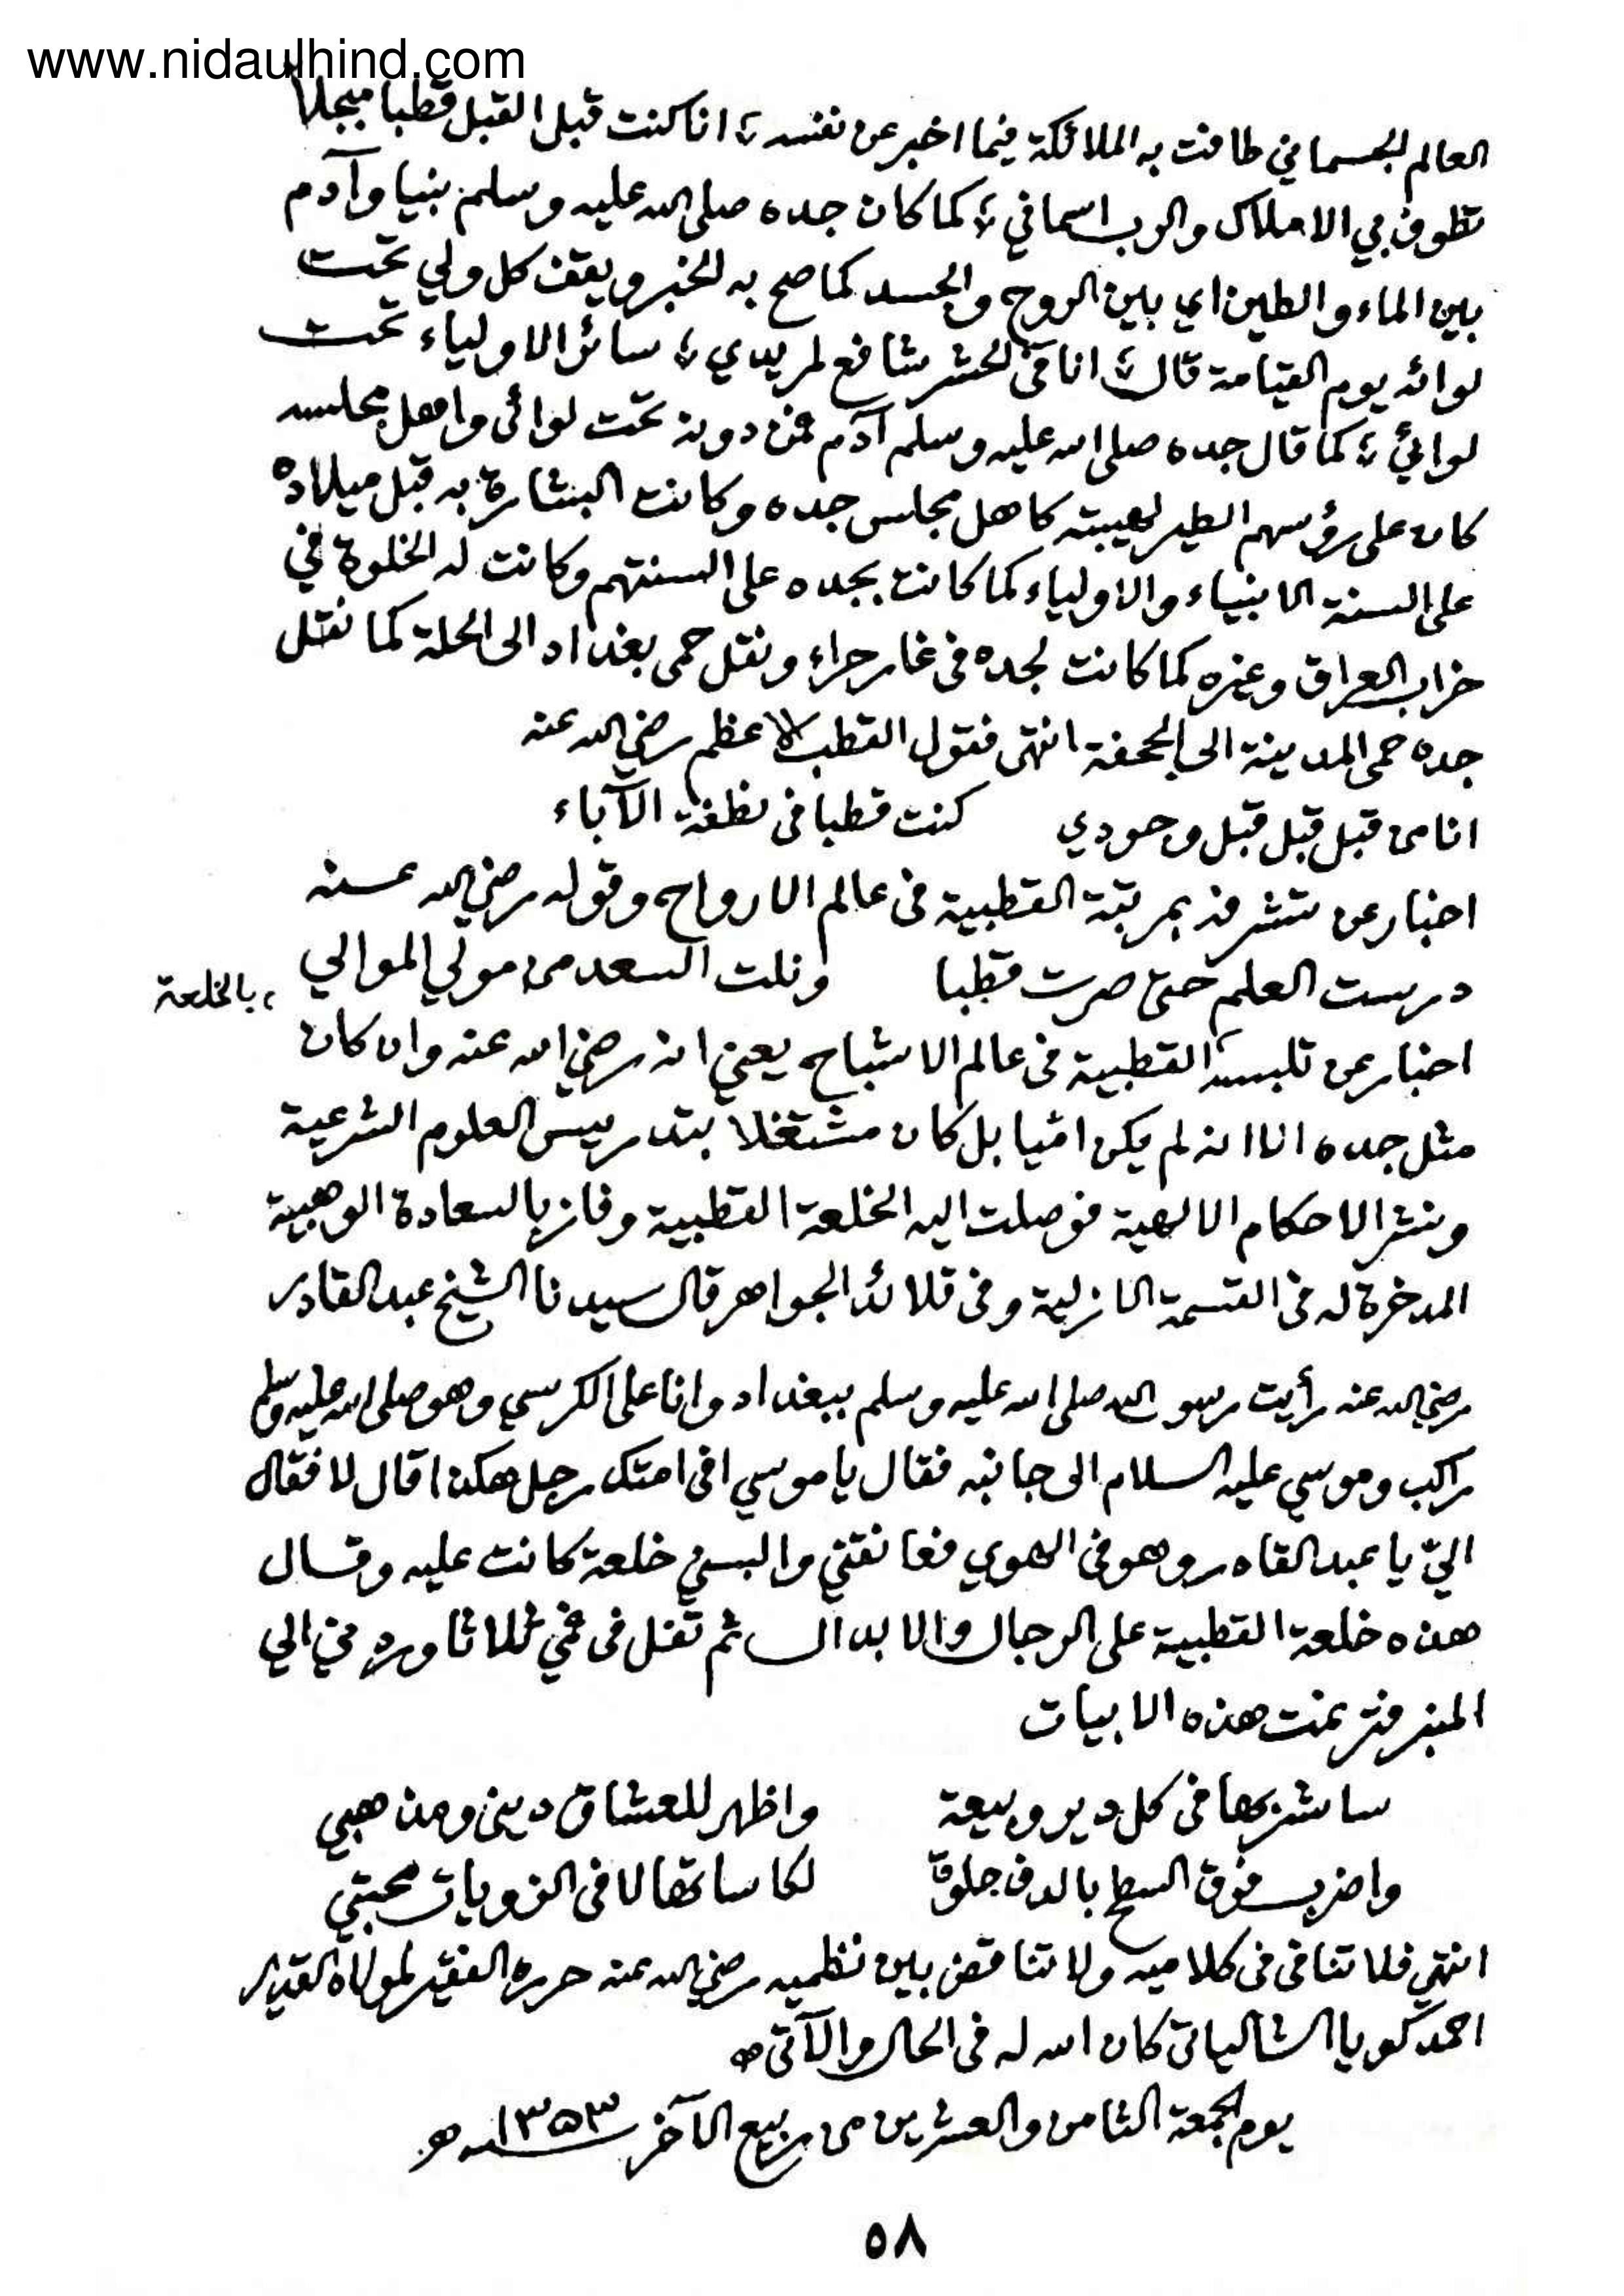 www.nidaulhind.com
العالم الجسماني طافت به الملائكة فيما اخبر عن نفسه ؛ انا كنت قبل القبل قطبا مبجلا
تطوف بي الاملاك والرب اسماني ؛ كما كان جده صلى الله عليه وسلم نبيا وآدم
بين الماء والطين اي بين الروح والجسد كما صح به الخبر ويقف كل ولي تحت
لوائه يوم القيامة قال ؛ انا في الحشر شافع لمريدي ؛ سائر الاولياء تحت
لوائي ؛ كما قال جده صلى الله عليه وسلم آدم فمن دونه تحت لوائى واهل مجلسه
كان على رؤسهم الطير لهيبته كاهل مجلس جده وكانت البشارة به قبل ميلاده
على السنة الانبياء والاولياء كما كانت بجده على السنتهم وكانت له الخلوة في
خراب العراق وغيره كما كانت لجده فى غار حراء ونقل حمى بغداد الى الحلة كما نقل
جده حمى المدينة الى الجحفة انتهى فقول القطب الاعظم رضي الله عنه
انا من قبل قبل قبل وجودي كنت قطبا فى نطفة الآباء
اخبار عن تشرفه بمرتبة القطبية فى عالم الارواح وقوله رضي الله عنه
درست العلم حتى صرت قطبا ونلت السعد من مولي الموالي
، بالخلعة
اخبار عن تلبسه القطبية فى عالم الاشباح يعني انه رضي الله عنه وان كان
مثل جده الا انه لم يكن اميا بل كان مشتغلا بتدريس العلوم الشرعية
ونشر الاحكام الالهية فوصلت اليه الخلعة القطبية وفاز بالسعادة الوهبية
المدخرة له فى القسمة الازلية وفى قلائد الجواهر قال سيدنا الشيخ عبد القادر
رضي الله عنه رأيت رسول الله صلى الله عليه وسلم ببغداد وانا على الكرسي وهو صلى الله عليه وسلم
راكب وموسي عليه السلام الى جانبه فقال يا موسي افى امتك رجل هكذا قال لا فقال
اليّ يا عبد القادر وهو فى الهوي فعانقني والبسني خلعة كانت عليه وقال
هذه خلعة القطبية على الرجال والابدال ثم تفل فى فمي ثلاثا وردني الي
المنبر فترنمت هذه الابيات
ساشربها فى كل دير وبيعة واظهر للعشاق دينى ومذهبي
واضرب فوق السطح بالدف جلوة لكاساتها لا فى الزويات محبتي
انتهي فلا تنافى فى كلاميه ولا تناقض بين نظميه رضي الله عنه حرره الفقير لمولاه القدير
احمد كويا الشالياتى كان الله له فى الحال والآتى
يوم الجمعة الثامن والعشرين من ربيع الآخر سنة ١٣٥٣ هـ
٥٨